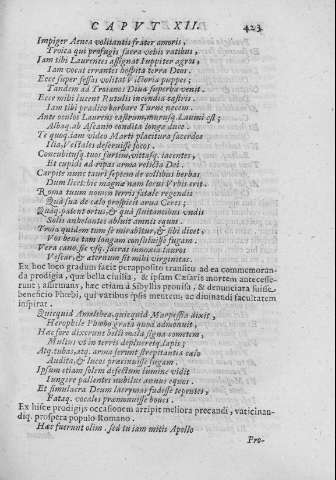 CAPVT XII. 423
Impiger Aenea volitantis frater amoris,
Troica qui profugis sacra vehis ratibus,
Iam tibi Laurentes assignat Iuppiter agros,
Iam vocat errantes hospita terra Deos.
Ecce super fessas volitat Victoria puppes;
Tandem ad Troianos Diua superba venit.
Ecce mihi lucent Rutulis incendia castris:
Iam tibi prædico barbare Turne necem.
Ante oculos Laurens castrum, murusq; Lauini est;
Albaq. ab Ascanio condita longa duce.
Te quoq. iam video Marti placitura sacerdos
Ilia, Vestales deseruisse focos.
Concubitusq. tuos furtim, vittasq. iacentes,
Et cupidi ad ripas arma relicta Dei.
Carpite nunc tauri septem de collibus herbas
Dum licet: hic magnæ iam locus Vrbis erit.
Roma tuum nomen terris fatale regendis
Quà sua de cælo prospicit arua Ceres;
Quàq. patent ortus, & quà fluitantibus vndis
Solis anhelantes abluit amnis equos.
Troia quidem tum se mirabitur, & sibi dicet,
Vos bene tam longam consuluisse fugam.
Vera cano: sic vsq. sacras innoxia lauros
Vescar, & æternum sit mihi virginitas.
Ex hoc loco gradum facit perapposito transitu ad ea commemoranda
prodigia, quæ bella ciuilia, & ipsam Cæsaris mortem antecesserunt;
asserit ans, hæc etiam à Sibyllis prouisa, & denunciata fuisse
beneficio Phœbi, qui vatibus ipsis mentem, ac diuinandi facultatem
inspirat.
Quicquid Amalthea, quicquid Marpessia dixit,
Herophile Phœbo grata quod admonuit,
Hæ fore dixerunt belli mala signa cometen,
Multus vt in terris deplueretq. lapis;
Atq. tubas, atq. arma ferunt strepitantia cælo
Audita, & lucos præcinuisse fugam.
Ipsum etiam solem defectum lumine vidit
Iungere pallentes nubilus annus equos.
Et simulacra Deum lacrymas fudisse tepentes,
Fataq. vocales præmonuisse boues.
Ex hisce prodigijs occasionem arripit meliora precandi, vaticinandiq.
prospera populo Romano.
Hæc fuerunt olim. sed tu iam mitis Apollo
Pro-